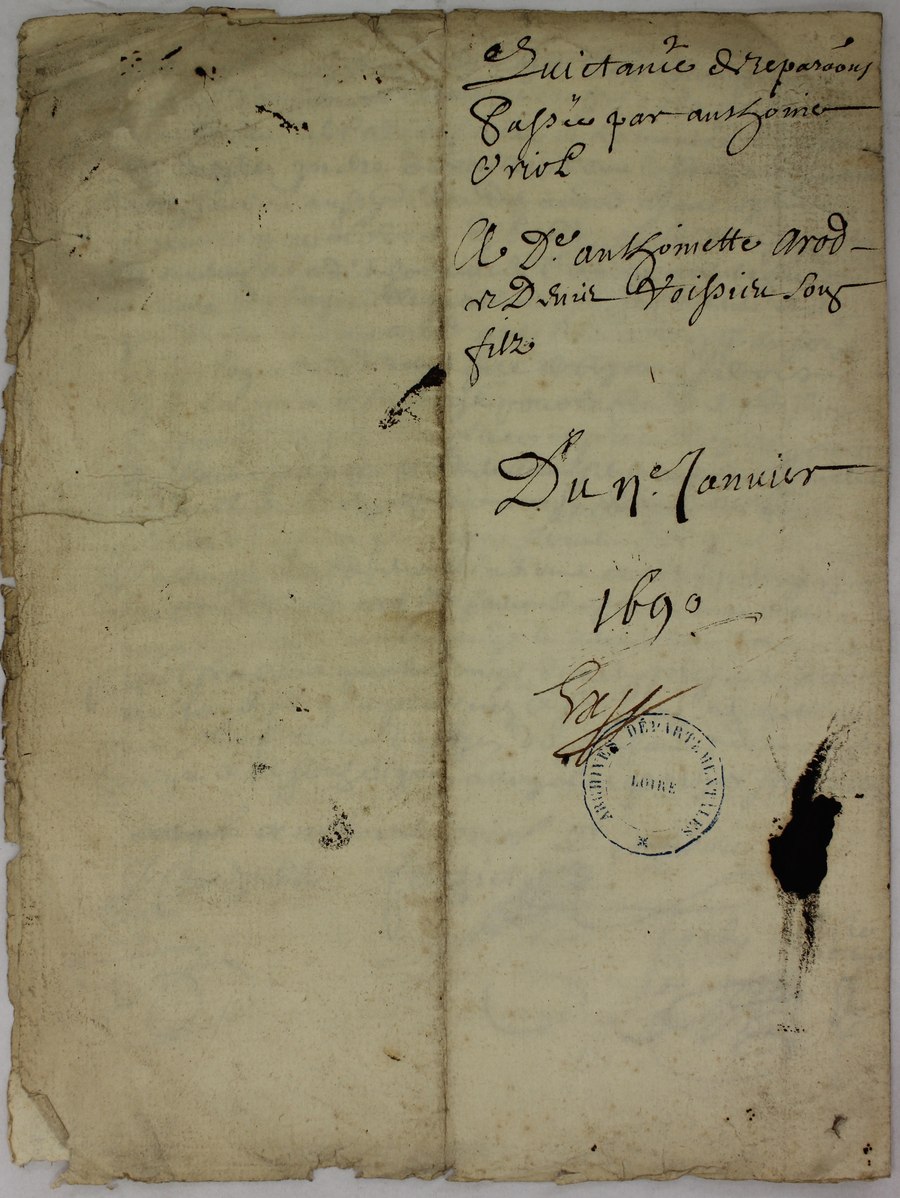 Quictance de reparaõns
Passée par anthoine
Oriol
A De. anthoinette arod
et Denis Voissieu Son
filz
Du ne. Janvier
1690
ARCHIVES DÉPARTEMENTALES
LOIRE